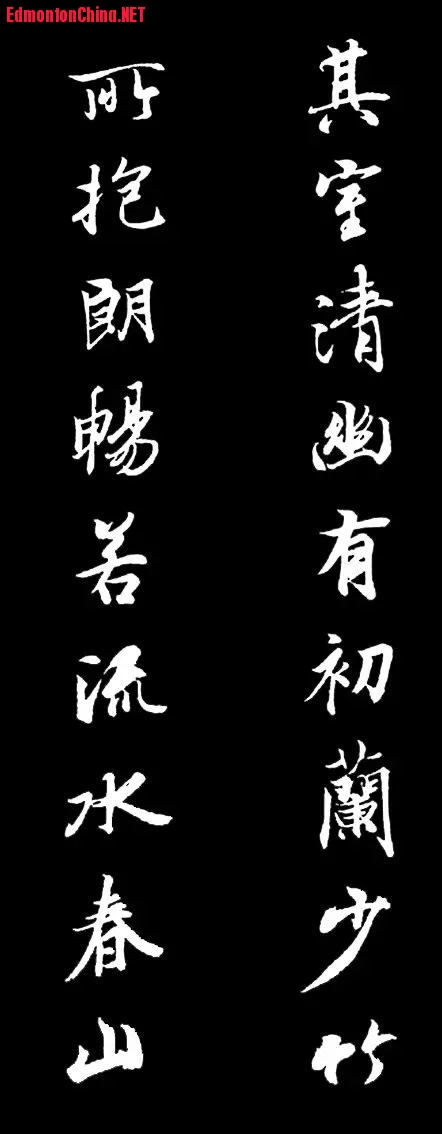 EdmontonChina.NET
其室清幽有初蘭少竹
所抱朗暢若流水春山